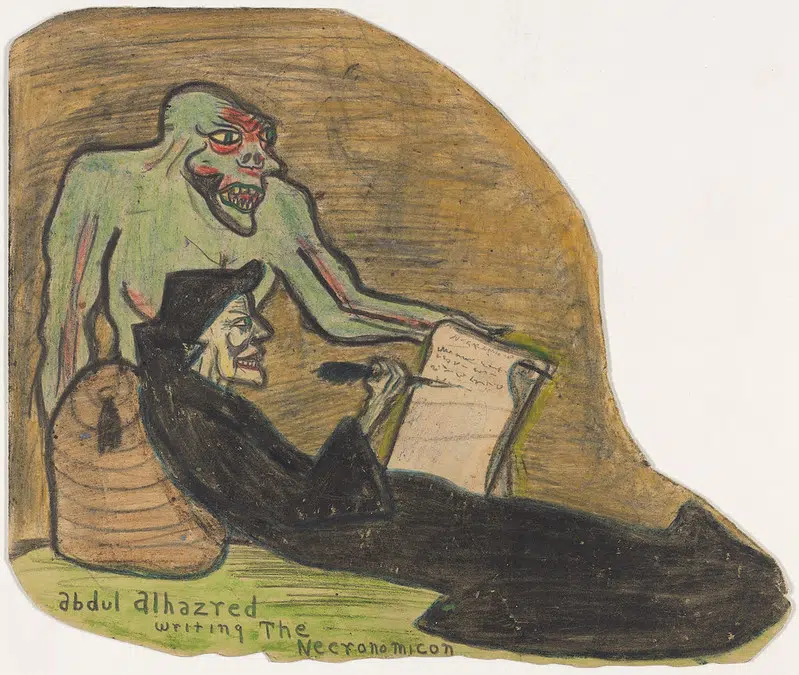 abdul alhazred
writing The
Necronomicon